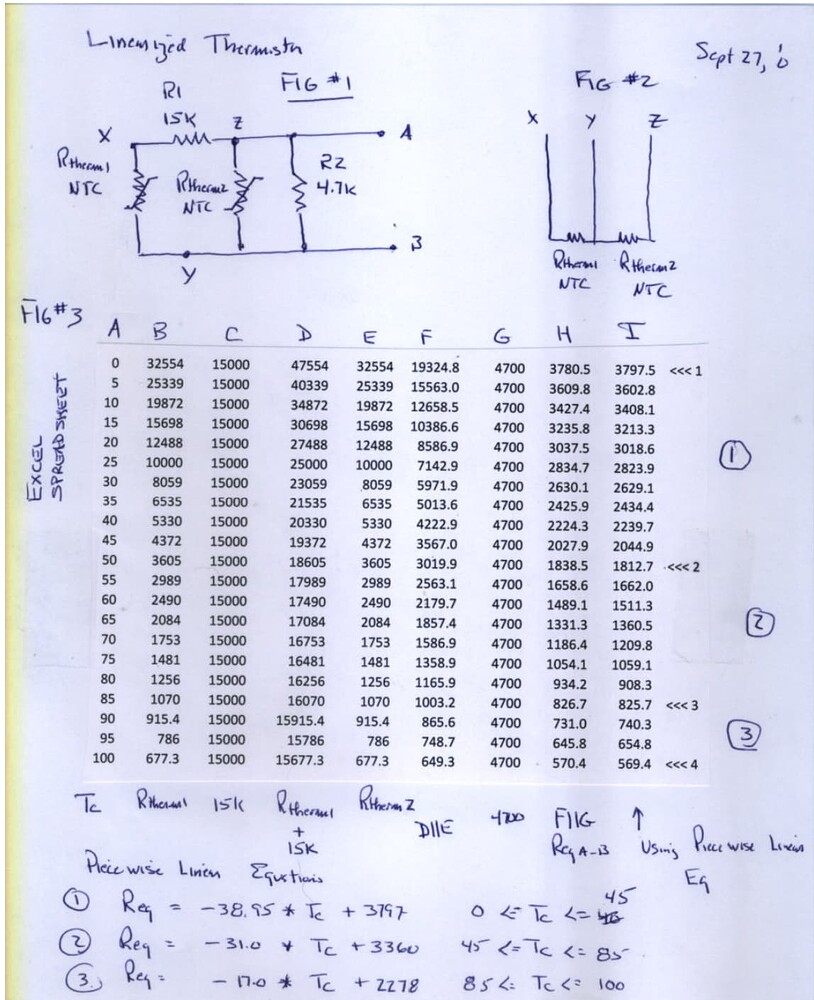 Linearized Thermistor
Sept 27,
FIG #1
FIG #2
R1
15K
X
Z
A
Rtherm1
NTC
Rtherm2
NTC
R2
4.7K
B
Y
X Y Z
Rtherm1
NTC
Rtherm2
NTC
FIG #3
EXCEL
SPREADSHEET
A B C D E F G H I
0 32554 15000 47554 32554 19324.8 4700 3780.5 3797.5 <<< 1
5 25339 15000 40339 25339 15563.0 4700 3609.8 3602.8
10 19872 15000 34872 19872 12658.5 4700 3427.4 3408.1
15 15698 15000 30698 15698 10386.6 4700 3235.8 3213.3
20 12488 15000 27488 12488 8586.9 4700 3037.5 3018.6
①
25 10000 15000 25000 10000 7142.9 4700 2834.7 2823.9
30 8059 15000 23059 8059 5971.9 4700 2630.1 2629.1
35 6535 15000 21535 6535 5013.6 4700 2425.9 2434.4
40 5330 15000 20330 5330 4222.9 4700 2224.3 2239.7
45 4372 15000 19372 4372 3567.0 4700 2027.9 2044.9
50 3605 15000 18605 3605 3019.9 4700 1838.5 1812.7 <<< 2
55 2989 15000 17989 2989 2563.1 4700 1658.6 1662.0
60 2490 15000 17490 2490 2179.7 4700 1489.1 1511.3
65 2084 15000 17084 2084 1857.4 4700 1331.3 1360.5
②
70 1753 15000 16753 1753 1586.9 4700 1186.4 1209.8
75 1481 15000 16481 1481 1358.9 4700 1054.1 1059.1
80 1256 15000 16256 1256 1165.9 4700 934.2 908.3
85 1070 15000 16070 1070 1003.2 4700 826.7 825.7 <<< 3
90 915.4 15000 15915.4 915.4 865.6 4700 731.0 740.3
③
95 786 15000 15786 786 748.7 4700 645.8 654.8
100 677.3 15000 15677.3 677.3 649.3 4700 570.4 569.4 <<< 4
Tc Rtherm1 15K Rtherm1 + 15K Rtherm2 D||E 4700 F||G Req A-B ↑ Using Piecewise Linear Eq
Piecewise Linear Equations
① Req = -38.95 * Tc + 3797 0 <= Tc <= 45
② Req = -31.0 * Tc + 3360 45 <= Tc <= 85
③ Req = -17.0 * Tc + 2278 85 <= Tc <= 100